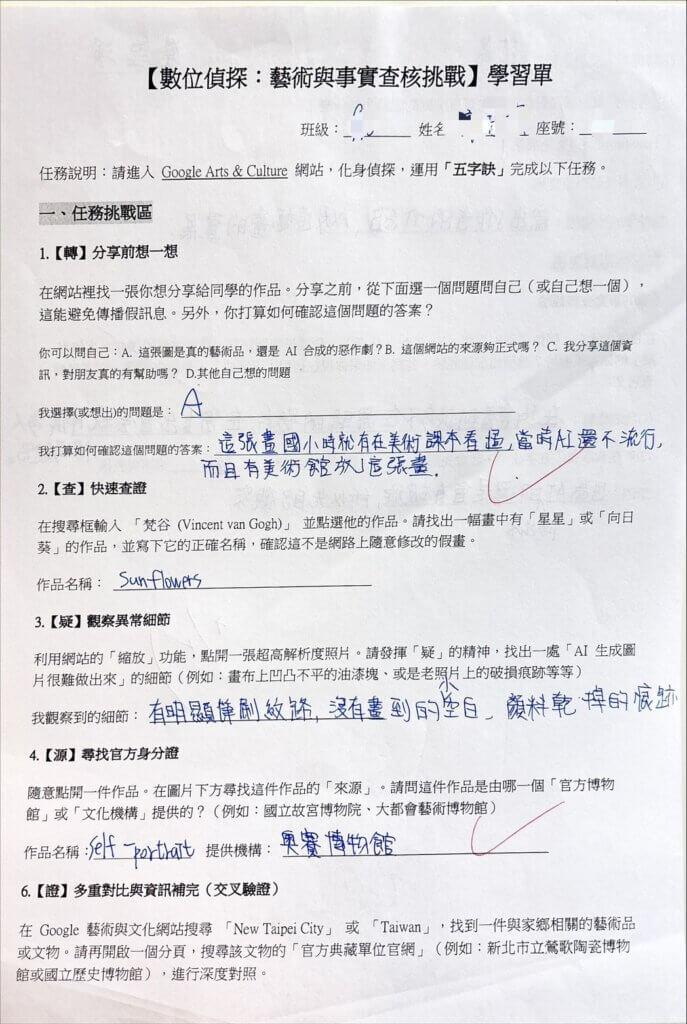 【數位偵探：藝術與事實查核挑戰】學習單
班級： 姓名 座號：
任務說明：請進入 Google Arts & Culture 網站，化身偵探，運用「五字訣」完成以下任務。
一、任務挑戰區
1.【轉】分享前想一想
在網站裡找一張你想分享給同學的作品。分享之前，從下面選一個問題問自己（或自己想一個），
這能避免傳播假訊息。另外，你打算如何確認這個問題的答案？
你可以問自己：A. 這張圖是真的藝術品，還是 AI 合成的惡作劇？B. 這個網站的來源夠正式嗎？ C. 我分享這個資
訊，對朋友真的有幫助嗎？ D.其他自己想的問題
我選擇（或想出）的問題是： A
我打算如何確認這個問題的答案：這張畫國小時就有在美術課本看過，當時AI還不流行，
而且有美術館放這張畫.
2.【查】快速查證
在搜尋框輸入 「梵谷 (Vincent van Gogh)」 並點選他的作品。請找出一幅畫中有「星星」或「向日
葵」的作品，並寫下它的正確名稱，確認這不是網路上隨意修改的假畫。
作品名稱： Sunflowers
3.【疑】觀察異常細節
利用網站的「縮放」功能，點開一張超高解析度照片。請發揮「疑」的精神，找出一處「AI 生成圖
片很難做出來」的細節（例如：畫布上凹凸不平的油漆塊、或是老照片上的破損痕跡等等）
我觀察到的細節： 有明顯筆刷紋路，沒有畫到的小空白、顏料乾掉的痕跡
4.【源】尋找官方身分證
隨意點開一件作品。在圖片下方尋找這件作品的「來源」。請問這件作品是由哪一個「官方博物
館」或「文化機構」提供的？（例如：國立故宮博物院、大都會藝術博物館）
作品名稱：Self-portrait 提供機構： 奧賽博物館
6.【證】多重對比與資訊補完（交叉驗證）
在 Google 藝術與文化網站搜尋 「New Taipei City」 或 「Taiwan」，找到一件與家鄉相關的藝術品
或文物。請再開啟一個分頁，搜尋該文物的「官方典藏單位官網」（例如：新北市立鶯歌陶瓷博物
館或國立歷史博物館），進行深度對照。